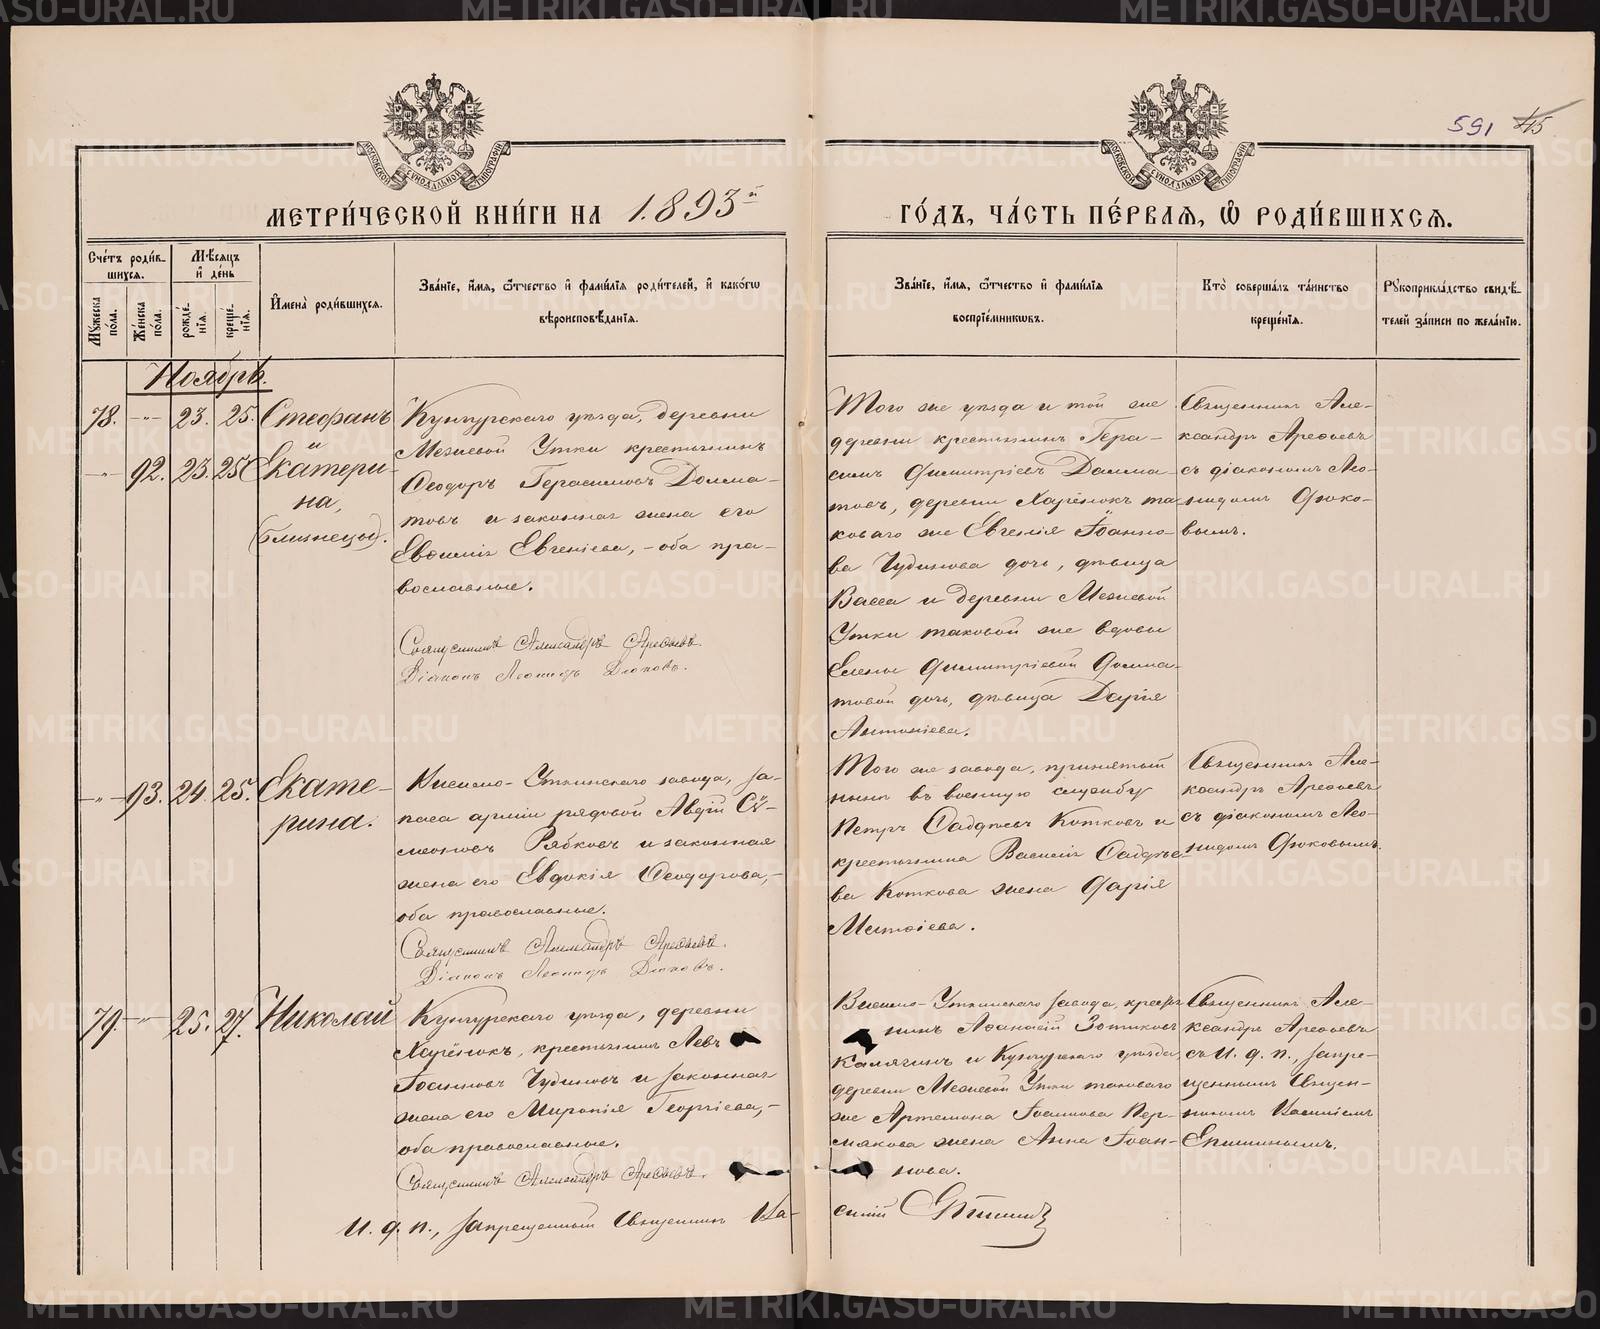 591 415
МЕТРИ́ЧЕСКОЙ КНИ́ГИ НА 1893й
ГО́ДЪ, ЧА́СТЬ ПЕ́РВАЯ, Ѡ РОДИ́ВШИХСЯ.
Сче́тъ роди́вшихся.
Мꙋ́жеска по́ла.
Же́нска по́ла.
Мѣ́сяцъ и де́нь
рожде́нїя.
креще́нїя.
И́мена роди́вшихся.
Зва́нїе, и́мя, ѻ́тчество и фами́лїя роди́телей, и како́гѡ
вѣроисповѣ́данїя.
Зва́нїе, и́мя, ѻ́тчество и фами́лїя
воспрїе́мникѡвъ.
Кто̀ соверша́лъ та́инство
креще́нїя.
Рꙋкоприкла́дство свидѣ́телей за́писи по жела́нїю.
Ноябрь.
78. -„- 23. 25. Стефанъ
и
-„- 92. 23. 25 Екатери-
на,
(близнецы).
Кунгурскаго уѣзда, деревни
Межевой Утки крестьянинъ
Ѳеодоръ Герасимовъ Долма-
товъ и законная жена его
Евѳимія Евгеніева, - оба пра-
вославные.
Священникъ Александръ Арефьевъ.
Діаконъ Леонидъ Дюковъ.
Того же уѣзда и той же
деревни крестьянинъ Гера-
симъ Димитріевъ Долма-
товъ, деревни Харёнокъ та-
коваго же Евгенія Іоанно-
ва Чудинова дочь, дѣвица
Васса и деревни Межевой
Утки таковой же вдовы
Елены Димитріевой Долма-
товой дочь, дѣвица Дарія
Антоніева.
Священникъ Але-
ксандръ Арефьевъ
съ діакономъ Лео-
нидомъ Дюко-
вымъ.
-„- 93. 24. 25. Екате-
рина.
Висимо-Уткинскаго завода, за-
паса арміи рядовой Авдій Си-
меоновъ Рябковъ и законная
жена его Евдокія Ѳеодорова, -
оба православные.
Священникъ Александръ Арефьевъ.
Діаконъ Леонидъ Дюковъ.
Того же завода, принятый
нынѣ въ военную службу
Петръ Фаддѣевъ Котковъ и
крестьянина Василія Фаддѣе-
ва Коткова жена Дарія
Матѳіева.
Священникъ Але-
ксандръ Арефьевъ
съ діакономъ Лео-
нидомъ Дюковымъ.
79. -„- 25. 27. Николай
Кунгурскаго уѣзда, деревни
Харёнокъ, крестьянинъ Левъ
Іоанновъ Чудиновъ и законная
жена его Миропія Георгіева, -
оба православные.
Священникъ Александръ Арефьевъ.
И. д. п., запрещенный Священникъ Ва-
силій Епишинъ
Висимо-Уткинскаго завода, крестья-
нинъ Аѳанасій Зотиковъ
Калягинъ и Кунгурскаго уѣзда
деревни Межевой Утки таковаго
же Артемона Іоаннова Пер-
мякова жена Анна Іоан-
нова.
Священникъ Але-
ксандръ Арефьевъ
съ И. д. п., запре-
щеннымъ Священ-
никомъ Василіемъ
Епишинымъ.
METRIKI.GASO-URAL.RU